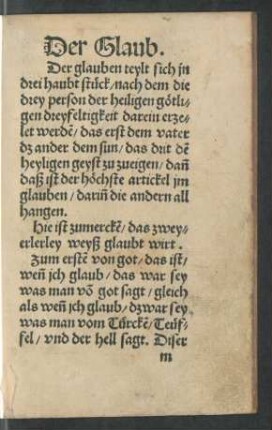 Der Glaub.
Der glauben teylt sich in
drei haubt stück/nach dem die
drey person der heiligen götli⸗
gen dreyfeltigkeit darein erze⸗
let werdẽ/das erst dem vater
dz ander dem sun/das drit dẽ
heyligen geyst zu zueigen/dañ
daß ist der höchste artickel jm
glauben/dariñ die andern all
hangen.
Hie ist zumerckẽ/das zwey⸗
erlerley weyß glaubt wirt.
Zum erstẽ von got/das ist/
weñ jch glaub/das war sey
was man võ got sagt/gleich
als weñ jch glaub/dzwar sey
was man vom Türckẽ/Teüf⸗
fel/vnd der hell sagt. Diser
m